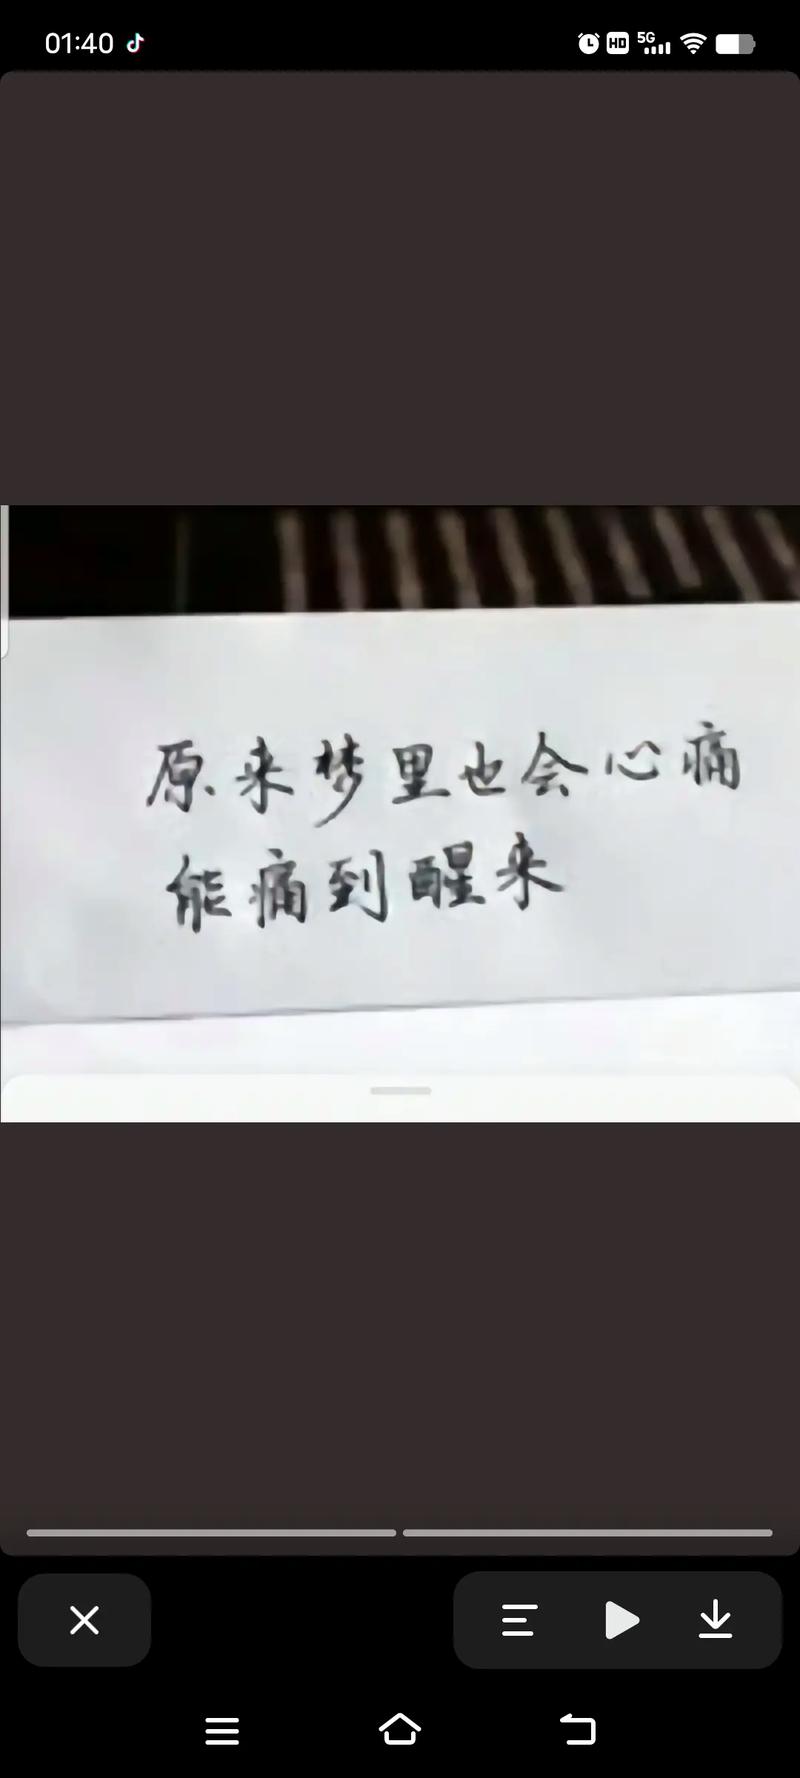 01:40
HD 5G
原来梦里也会心痛
能痛到醒来